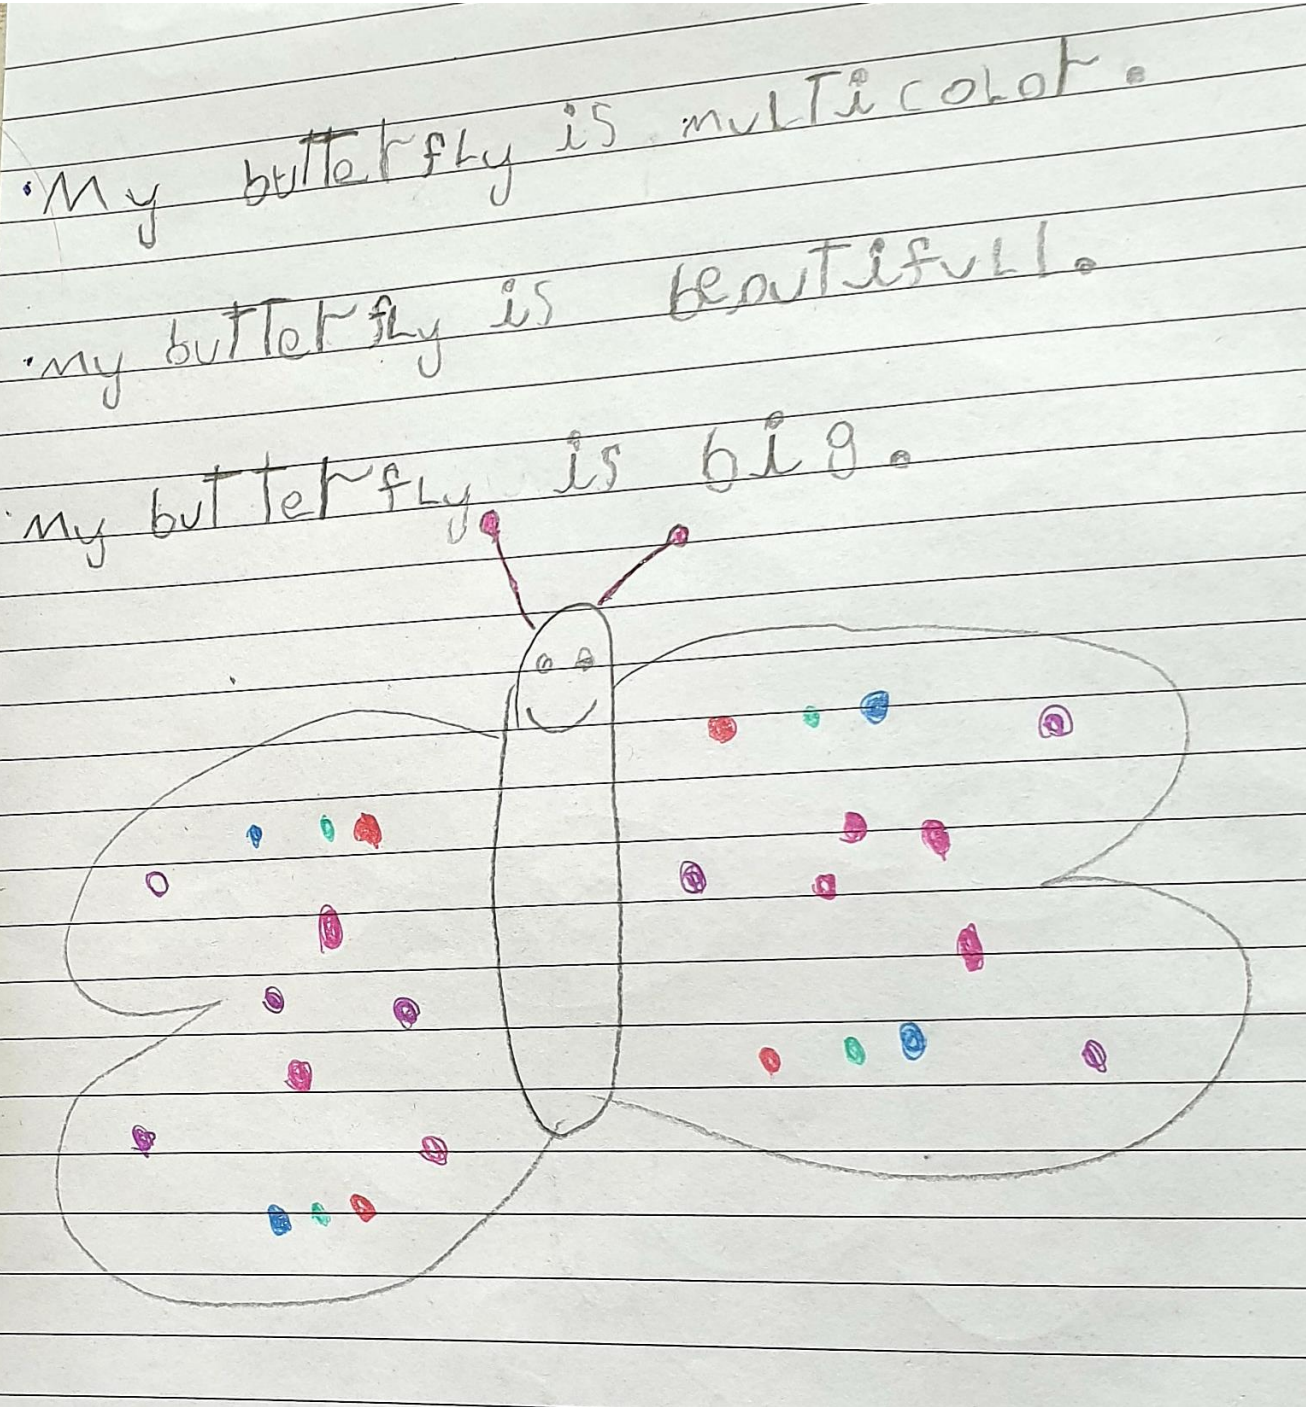 ·My butterfly is multicolor.
·My butterfly is beautifull.
·My butterfly is big.